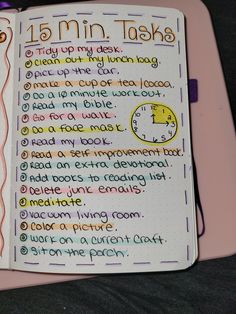 15 Min. Tasks
Tidy up my desk.
Clean out my lunch bag.
Pick up the car.
make a cup of tea/cocoa.
Do a 10 minute workout.
Read my Bible.
Go for a walk.
Do a face mask.
Read my book.
Read a self improvement book.
Read an extra devotional.
Add books to reading list.
Delete junk emails.
meditate.
vacuum living room.
color a picture.
work on a current craft.
sit on the porch.